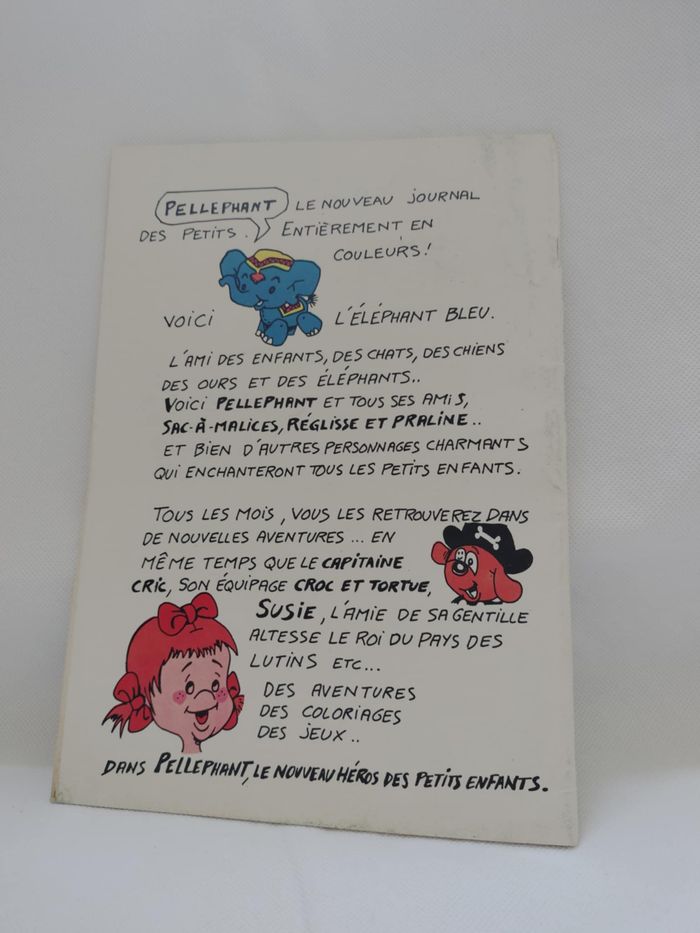 PELLEPHANT LE NOUVEAU JOURNAL
DES PETITS. ENTIÈREMENT EN
COULEURS!
VOICI L'ÉLÉPHANT BLEU.
L'AMI DES ENFANTS, DES CHATS, DES CHIENS
DES OURS ET DES ÉLÉPHANTS..
VOICI PELLEPHANT ET TOUS SES AMIS,
SAC-À-MALICES, RÉGLISSE ET PRALINE..
ET BIEN D'AUTRES PERSONNAGES CHARMANTS
QUI ENCHANTERONT TOUS LES PETITS ENFANTS.
TOUS LES MOIS, VOUS LES RETROUVEREZ DANS
DE NOUVELLES AVENTURES ... EN
MÊME TEMPS QUE LE CAPITAINE
CRIC, SON ÉQUIPAGE CROC ET TORTUE,
SUSIE, L'AMIE DE SA GENTILLE
ALTESSE LE ROI DU PAYS DES
LUTINS ETC...
DES AVENTURES
DES COLORIAGES
DES JEUX..
DANS PELLEPHANT, LE NOUVEAU HÉROS DES PETITS ENFANTS.